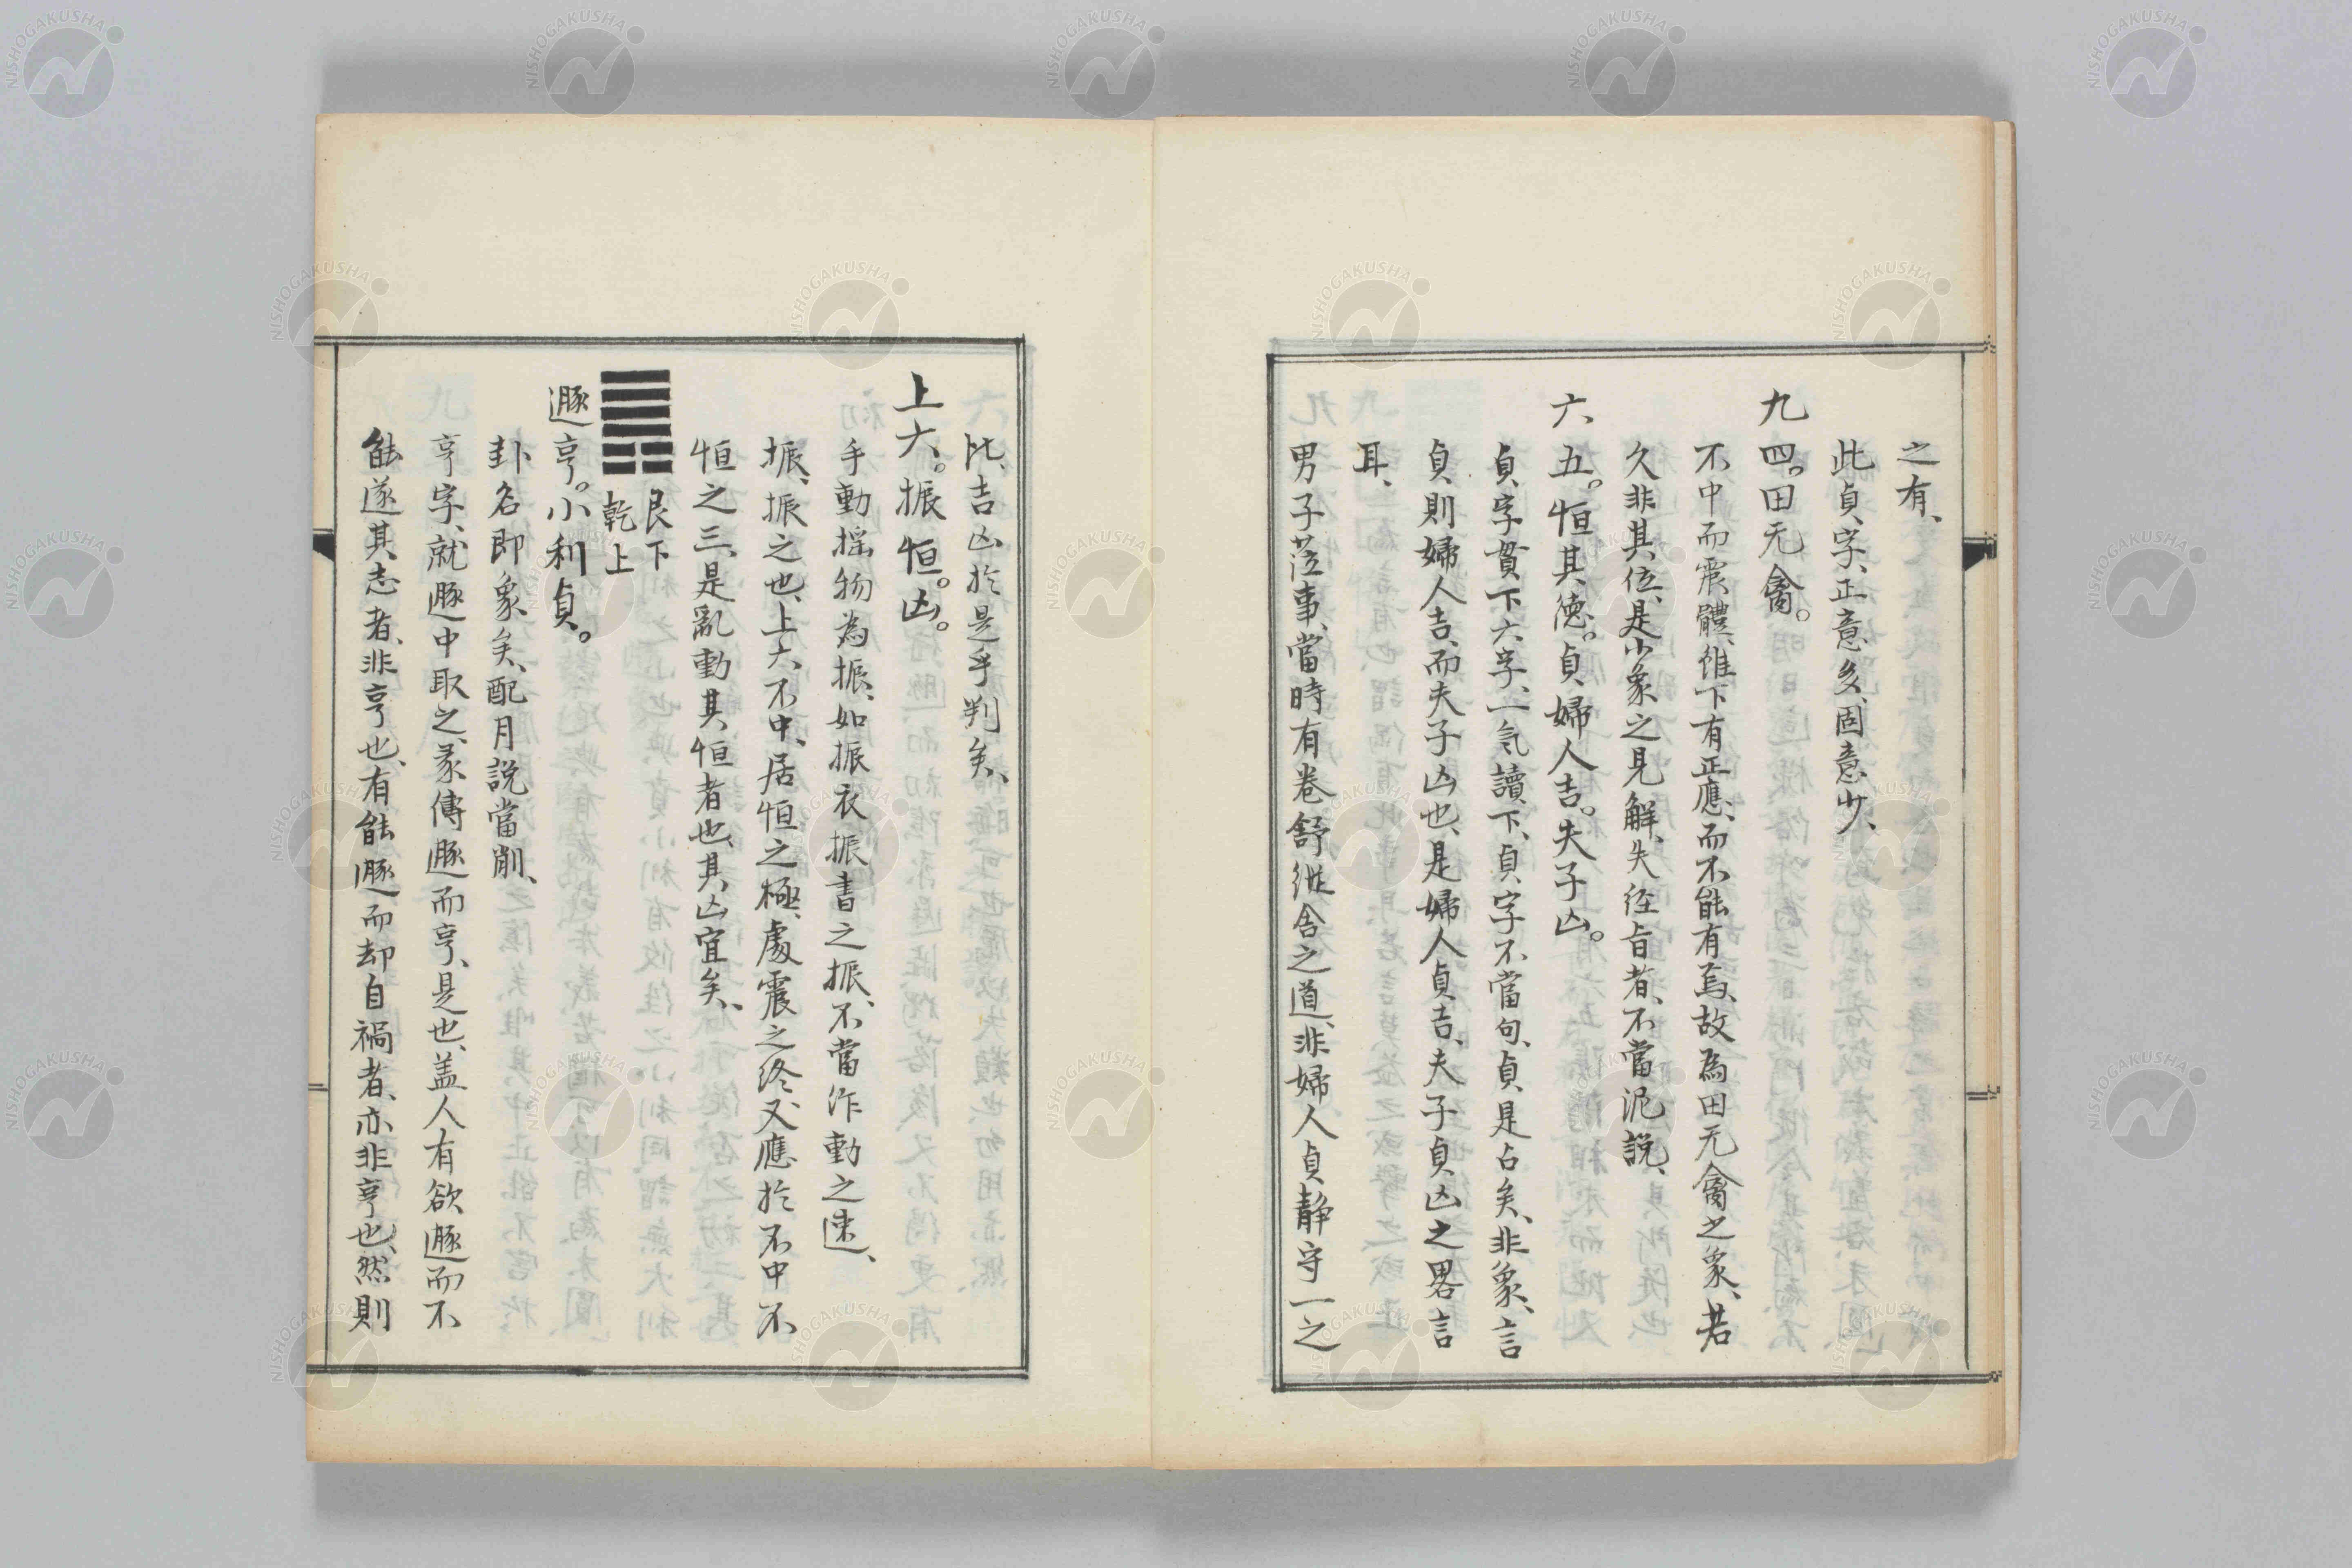 之有、
此貞字、正意多、固意少、
九四。田无禽。
不中而震體、雖下有正應、而不能有焉、故為田无禽之象、若
久非其位、是小象之見解、失經旨者、不當泥說、
六五。恒其德。貞婦人吉。夫子凶。
貞字貫下六字、一気讀下、貞字不當句、貞是占矣、非象、言
貞則婦人吉、而夫子凶也、是婦人貞吉、夫子貞凶之畧言
耳、
男子莅事、當時有卷舒縱舍之道、非婦人貞静守一之
比、吉凶於是乎判矣、
上六。振恒。凶。
手動揺物為振、如振衣振書之振、不當作動之速、
振、振之也、上六、不中、居恒之極、處震之終、又應於不中不
恒之三、是亂動其恒者也、其凶宜矣、
艮下
乾上
遯亨。小利貞。
卦名即象矣、配月説當削、
亨字、就遯中取之、彖傳遯而亨、是也、盖人有欲遯而不
能遂其志者、非亨也、有能遯而却自禍者、亦非亨也、然則
NISHOGAKUSHA